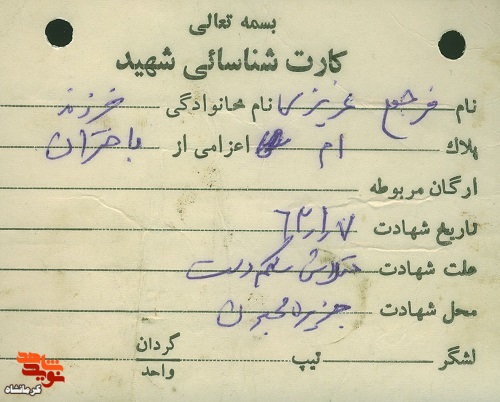 بسمه تعالی
کارت شناسائی شهید
نام فرخی عزیز نام خانوادگی فرزند
پلاک ام اعزامی از باختران
ارگان مربوطه
تاریخ شهادت ۶۲/۱/۷
علت شهادت شکم دست
محل شهادت جزیره مجنون
لشگر تیپ گردان
واحد
شاهد
نوید
کرمانشاه